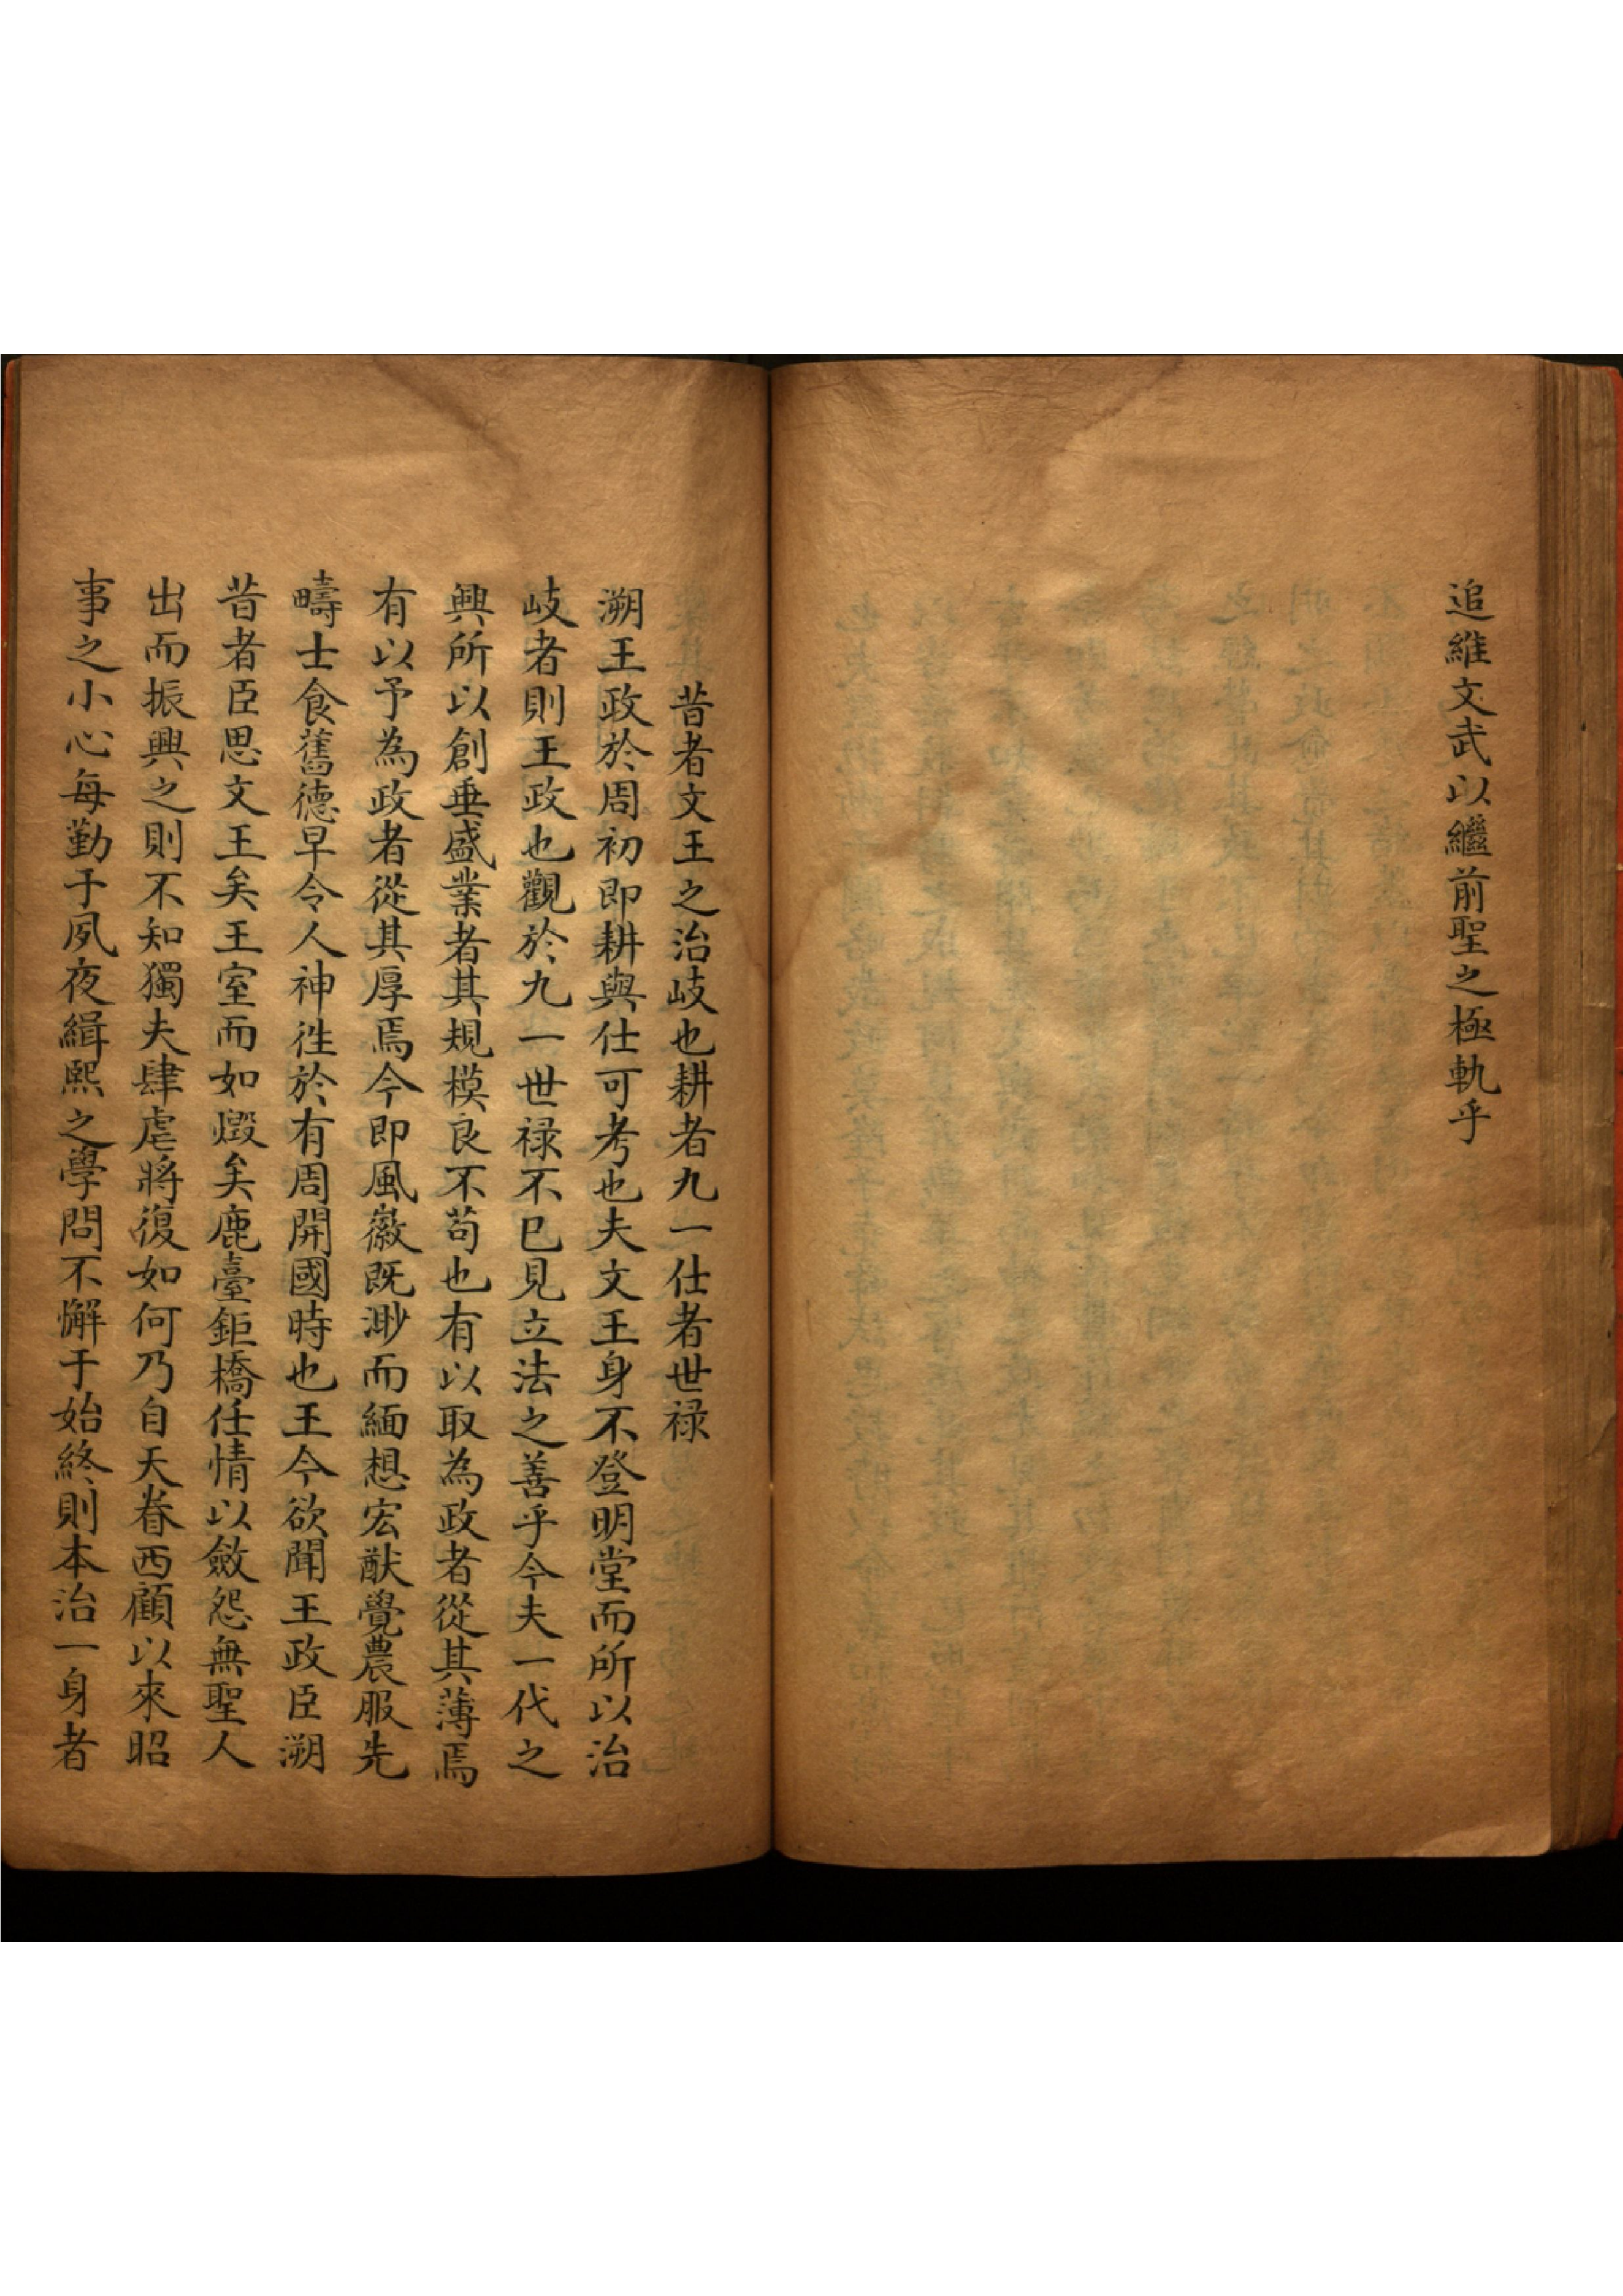 追維文武以繼前聖之極軌乎
昔者文王之治岐也耕者九一仕者世禄
溯王政於周初即耕與仕可考也夫文王身不登明堂而所以治
岐者則王政也觀於九一世禄不已見立法之善乎今夫一代之
興所以創垂盛業者其規模良不苟也有以取為政者從其薄焉
有以予為政者從其厚焉今即風徽既渺而緬想宏猷覺農服先
疇士食舊德早令人神徃於有周開國時也王今欲聞王政臣溯
昔者臣思文王矣王室而如燬矣鹿臺鉅橋任情以斂怨無聖人
出而振興之則不知獨夫肆虐將復如何乃自天眷西顧以來昭
事之小心每勤于夙夜緝熙之學問不懈于始終則本治一身者